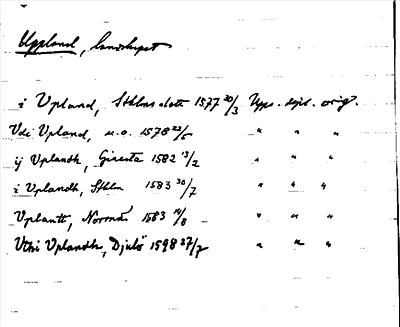 Uppland, landskapet
i Vpland, Sthlms slott 1577 20/3 Upps. dipl. orig.
Vdi Vpland, u.o. 1578 22/5 " " "
ij Vplandh, Giresta 1582 13/2 " " "
i Vplandh, Sthlm 1583 30/7 " " "
Vplantt, Norrnäs 1583 14/8 " " "
Vthi Vplandh, Djulö 1598 27/7 " " "